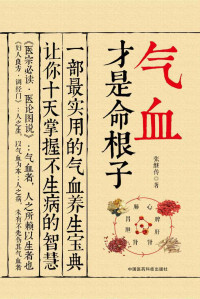 气血
才是命根子
张继传 著
一部最实用的气血养生宝典
让你十天掌握不生病的智慧
《医宗必读·医论图说》:气血者，人之所赖以生者也
《妇人良方·调经门》:人之生，以气血为本；人之病，未有不先伤其气血者
中国医药科技出版社